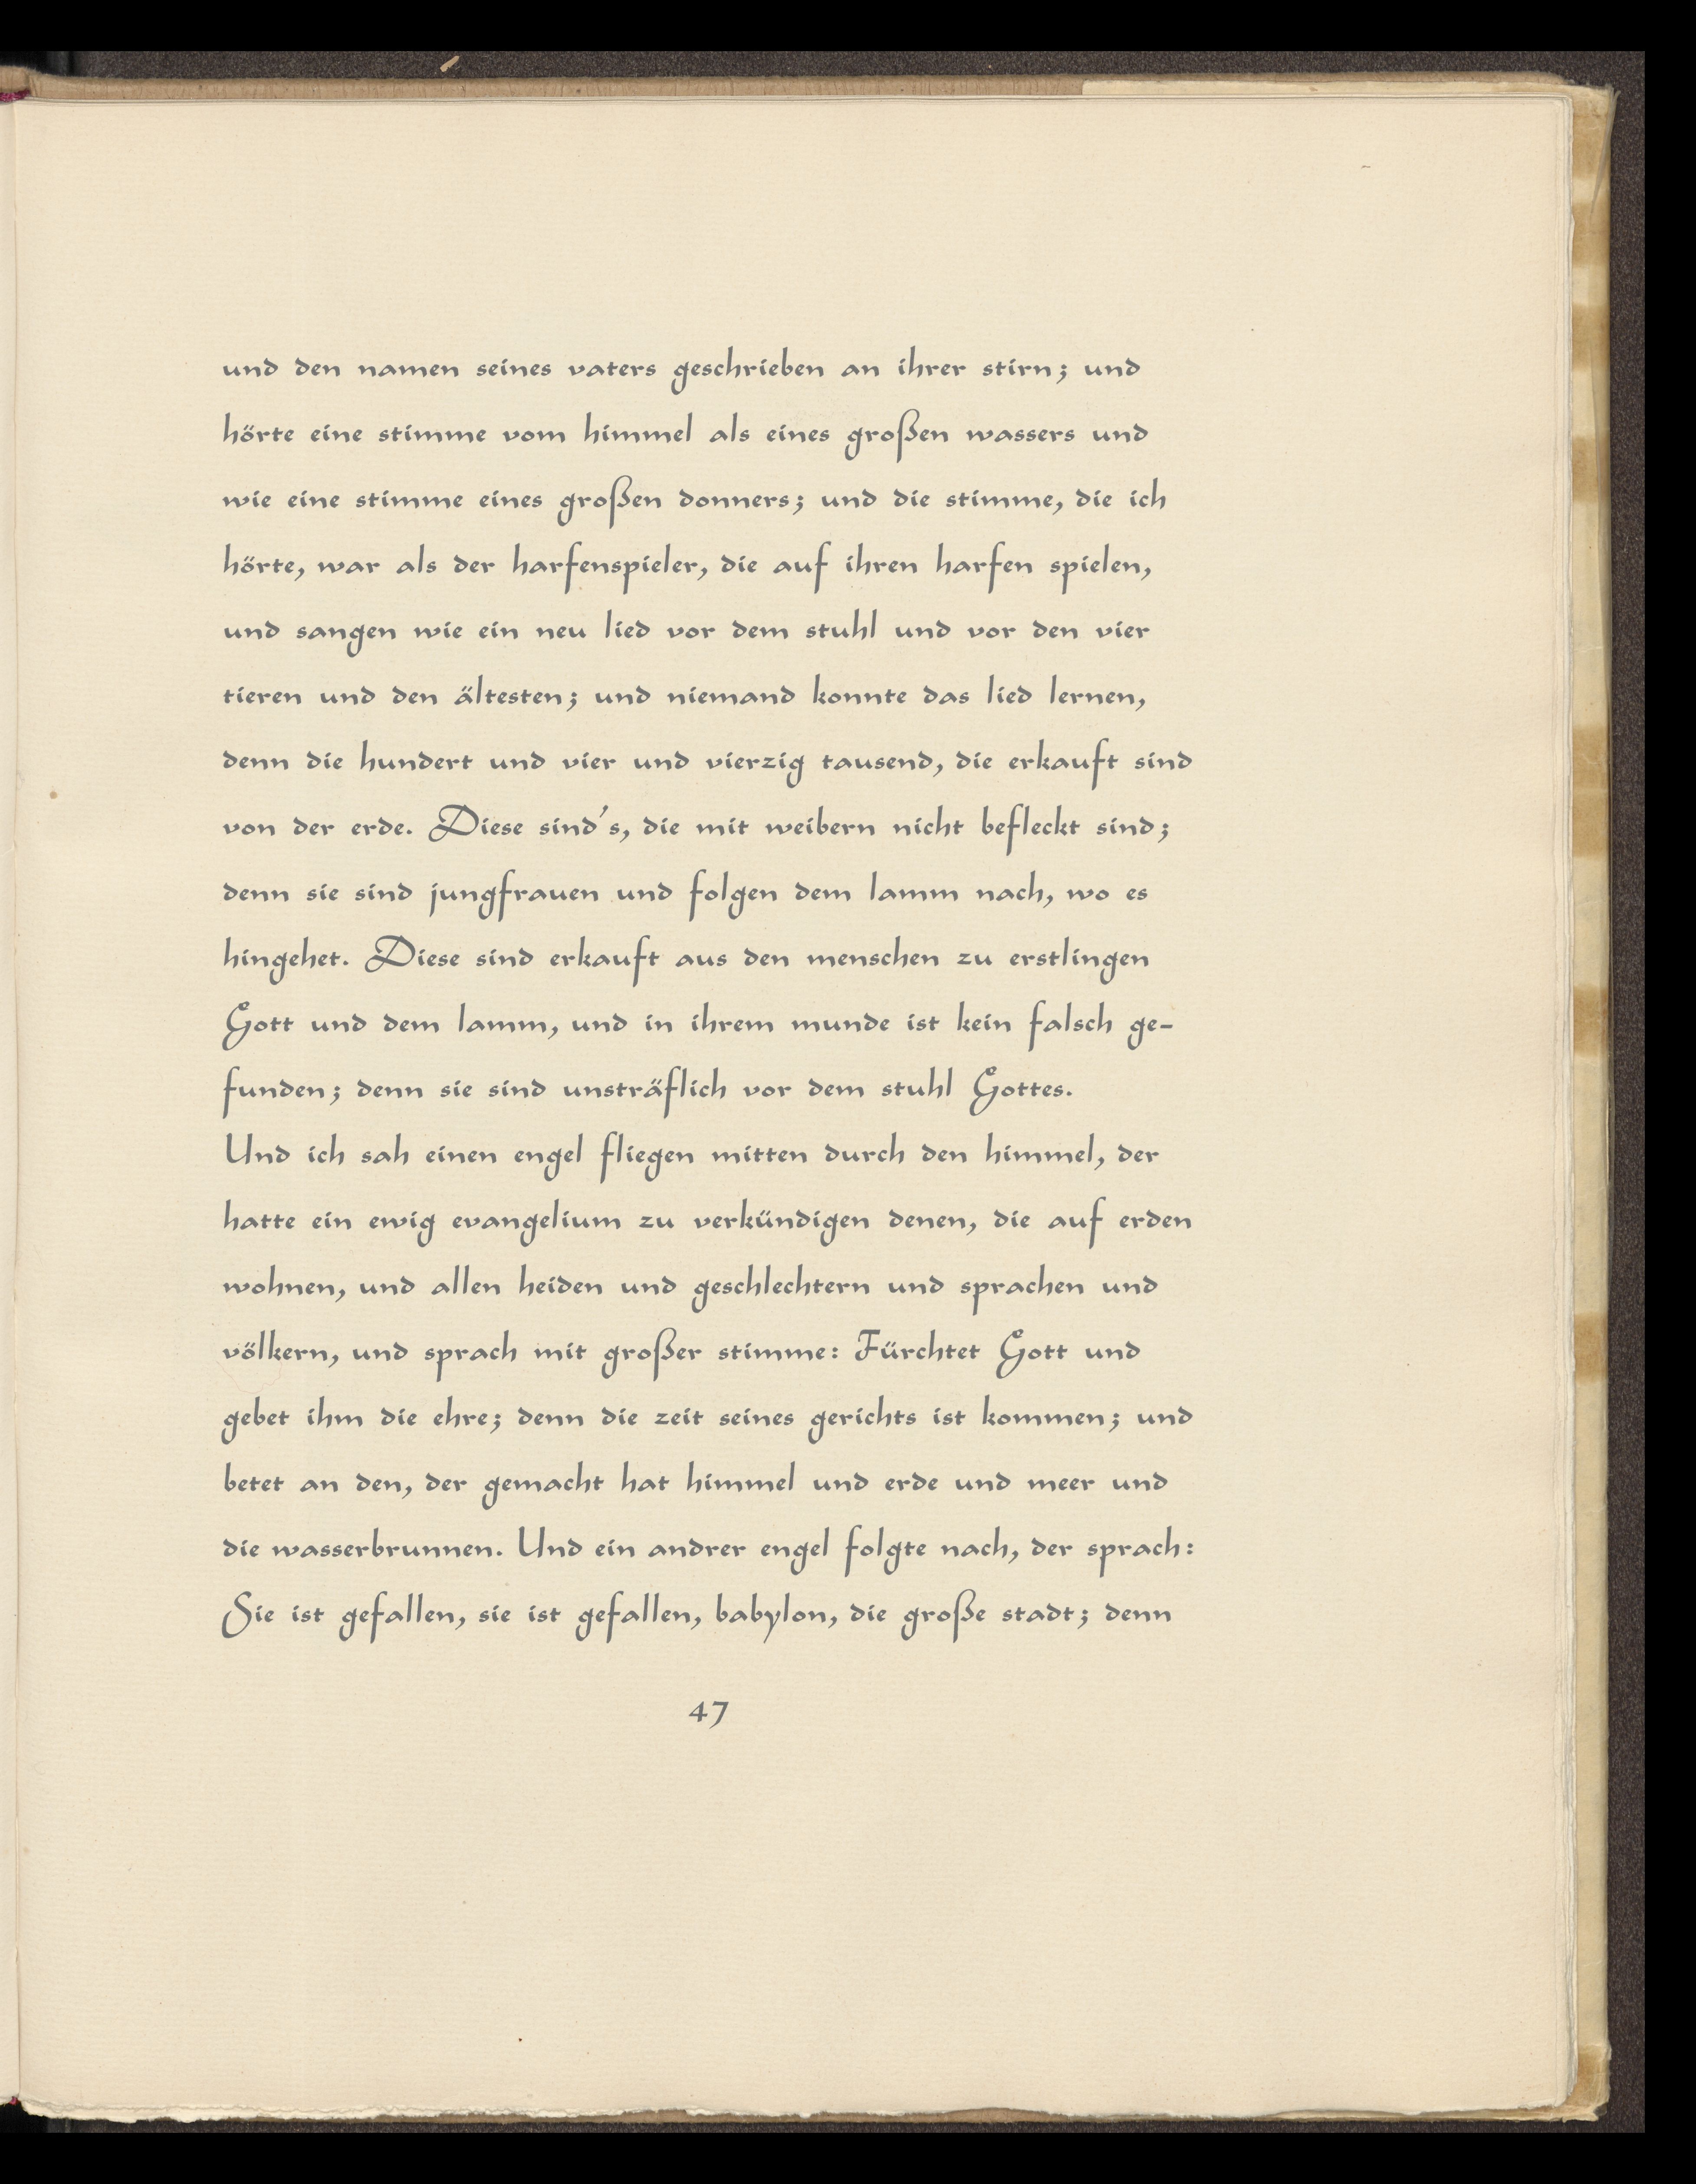 und den namen seines vaters geschrieben an ihrer stirn; und
hörte eine stimme vom himmel als eines großen wassers und
wie eine stimme eines großen donners; und die stimme, die ich
hörte, war als der harfenspieler, die auf ihren harfen spielen,
und sangen wie ein neu lied vor dem stuhl und vor den vier
tieren und den ältesten; und niemand konnte das lied lernen,
denn die hundert und vier und vierzig tausend, die erkauft sind
von der erde. Diese sind's, die mit weibern nicht befleckt sind;
denn sie sind jungfrauen und folgen dem lamm nach, wo es
hingehet. Diese sind erkauft aus den menschen zu erstlingen
Gott und dem lamm, und in ihrem munde ist kein falsch ge-
funden; denn sie sind unsträflich vor dem stuhl Gottes.
Und ich sah einen engel fliegen mitten durch den himmel, der
hatte ein ewig evangelium zu verkündigen denen, die auf erden
wohnen, und allen heiden und geschlechtern und sprachen und
völkern, und sprach mit großer stimme: Fürchtet Gott und
gebet ihm die ehre; denn die zeit seines gerichts ist kommen; und
betet an den, der gemacht hat himmel und erde und meer und
die wasserbrunnen. Und ein andrer engel folgte nach, der sprach:
Sie ist gefallen, sie ist gefallen, babylon, die große stadt; denn
47